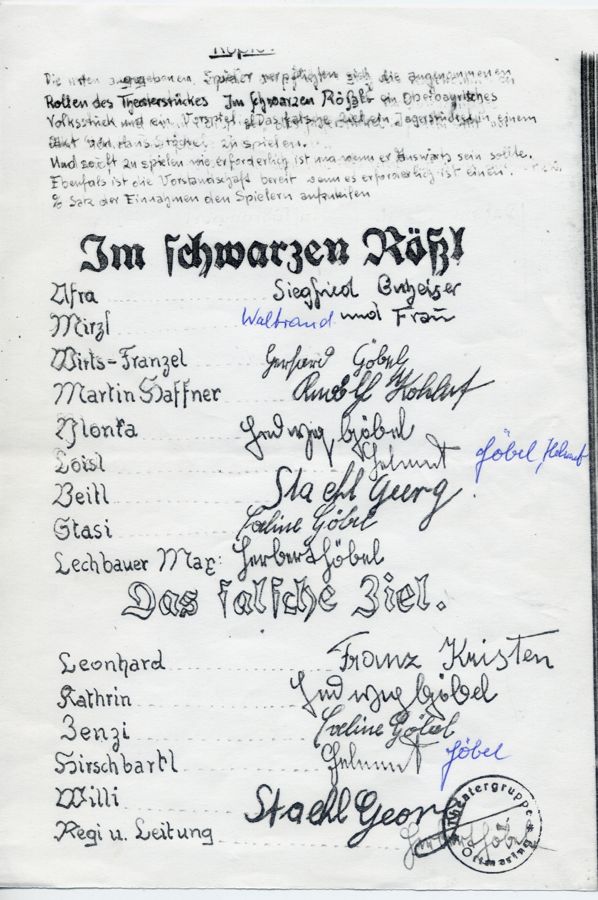 Kopie.
Die unten angegebenen Spieler verpflichten sich die angenommenen
Rollen des Theaterstückes Im schwarzen Rößl ein Oberbayrisches
Volksstück und ein Vorspiel Das falsche Ziel ein in einem
Akt von Hans zu spielen.
Und zu spielen wie erforderlich ist wenn er Auswärts sein sollte.
Ebenfals ist die Vorstandschaft bereit wenn es erforderlich ist einen
% Satz der Einnahmen den Spielern
Im schwarzen Rößl
Afra Siegfried
Mirzl Waltraud und Frau
Wirts-Franzel Gerhard Göbel
Martin Haffner Rudolf
Ilonka Hedwig Göbel
Loisl Helmut Göbel, Helmut
Veitl Stachl Georg
Stasi Göbel
Lechbauer Max: Herbert Göbel
Das falsche Ziel.
Leonhard Franz Kristen
Kathrin Hedwig Göbel
Zenzi Göbel
Hirschbartl Helmut Göbel
Willi Stachl Georg
Regi u. Leitung Herbert Göbel
Theatergruppe
Ottmaring